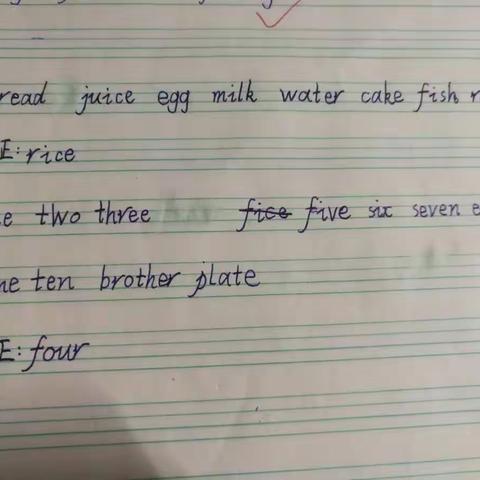 read juice egg milk water cake fish r
正:rice
e two three fice five six seven e
ne ten brother plate
正:four